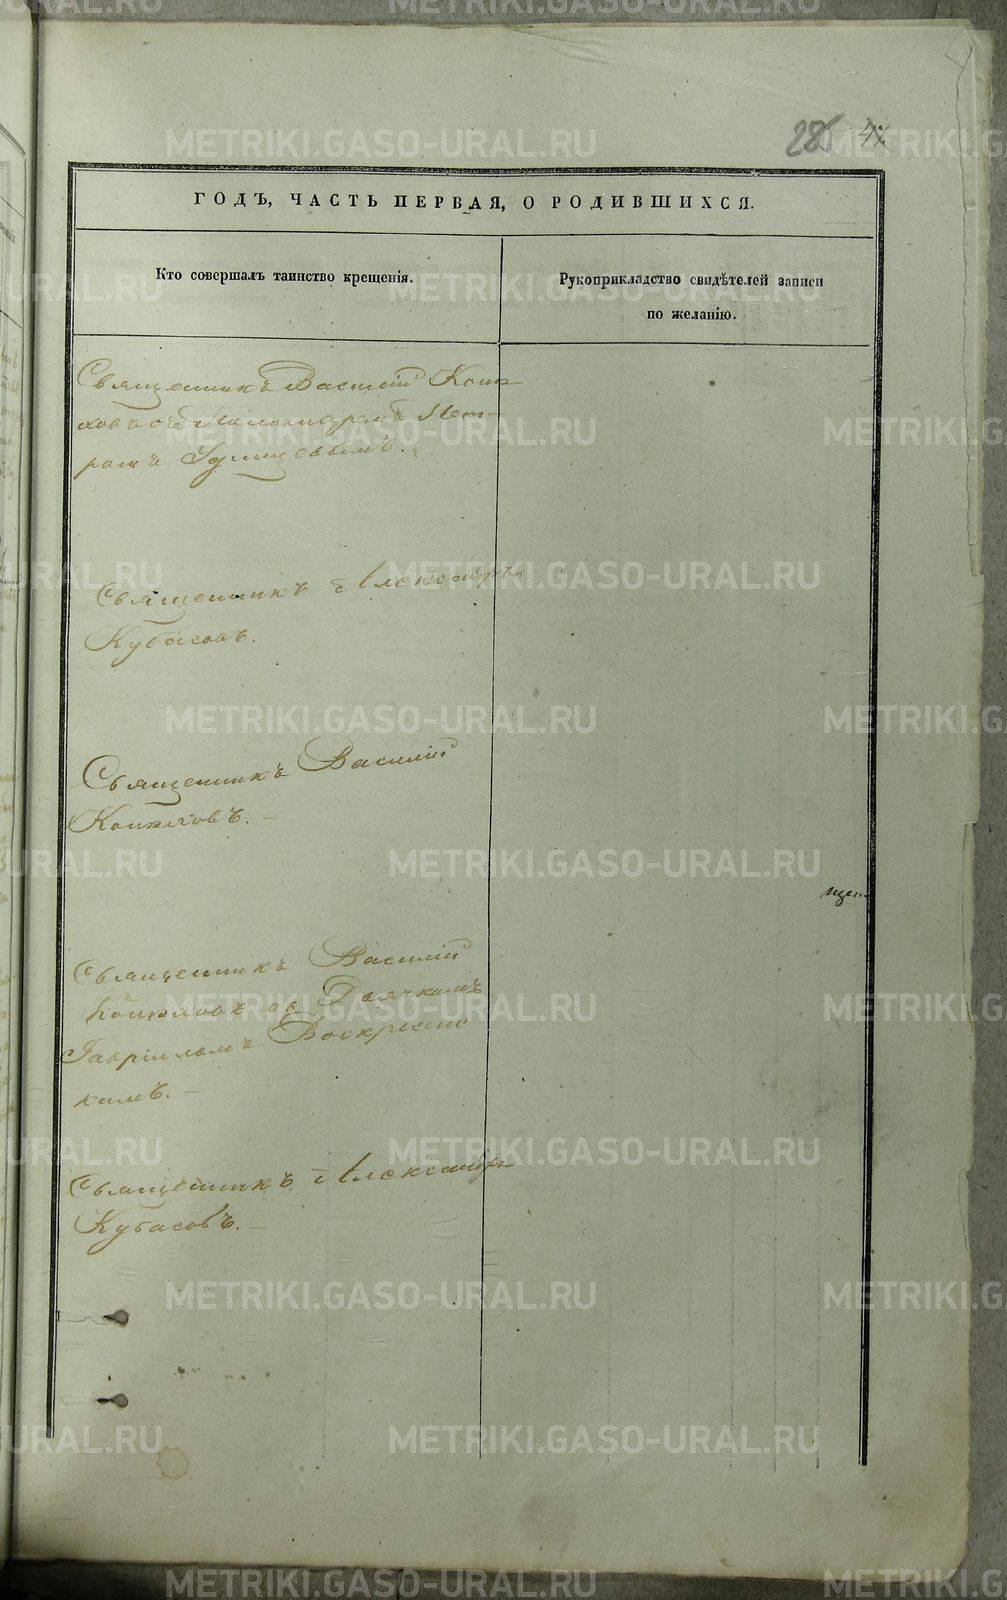 286 4
ГОДЪ, ЧАСТЬ ПЕРВАЯ, О РОДИВШИХСЯ.
Кто совершалъ таинство крещенія.
Рукоприкладство свидѣтелей записи
по желанію.
Священникъ Василій Коня
ховъ съ Пономаремъ Пет
ромъ
Священникъ Александръ
Кубасовъ.
Священникъ Василій
Коняховъ.
Священникъ Василій
Коняховъ съ Дьячкомъ
Гавріиломъ Воскресенс
кимъ.
Священникъ Александръ
Кубасовъ.
METRIKI.GASO-URAL.RU